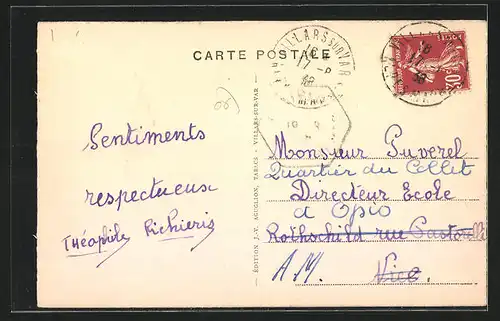 CARTE POSTALE
VILLARS SUR VAR
Sentiments
respectueux
Théophile Richieris
ÉDITION J.-V. AGUGLION, TABACS - VILLARS-SUR-VAR
Monsieur Puverel
Quartier du Collet
Directeur Ecole
a Opio
Rothschild rue Pastorelli
A.M. Nice